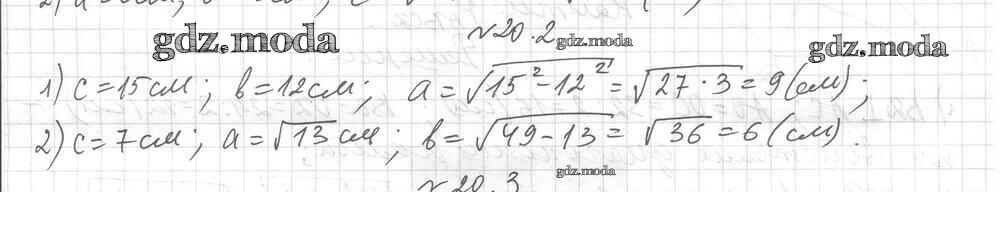 №20.2
gdz.moda
gdz.moda
gdz.moda
1) c = 15 см; в = 12 см; a = √15² - 12² = √27 · 3 = 9 (см);
2) c = 7 см; a = √13 см; в = √49 - 13 = √36 = 6 (см).
gdz.moda
№20.3